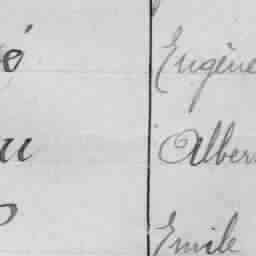 é Eugène
u Alber
Emile